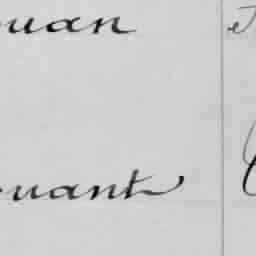 ouan
ouant